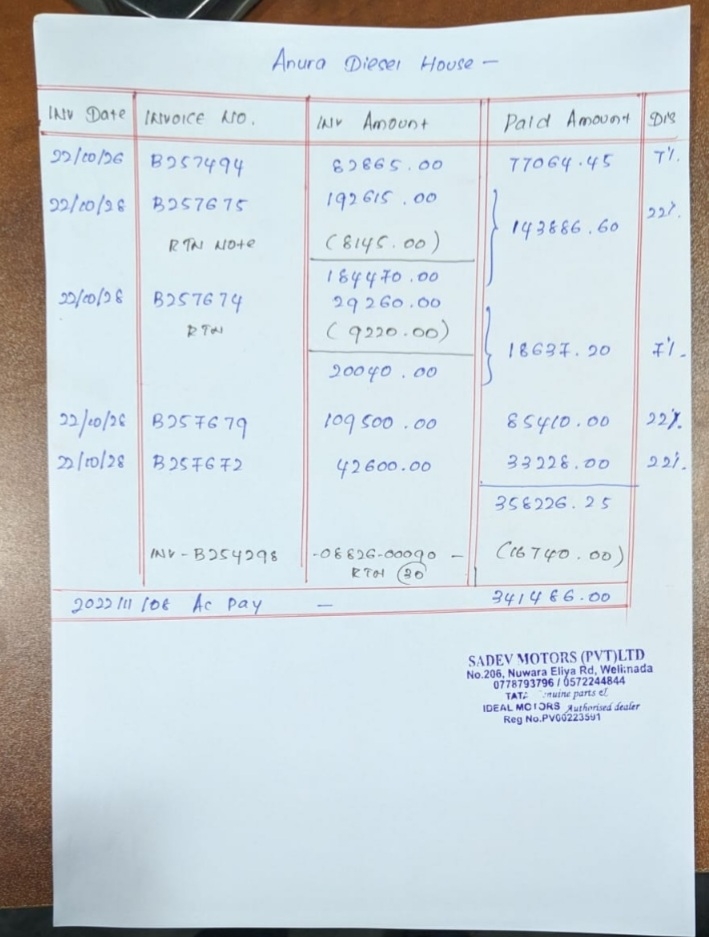 Anura Diesel House -
INV Date INVOICE NO. INV Amount Paid Amount DIS
22/10/26 B257494 82865.00 77064.45 7%
22/10/28 B257675 192615.00 143886.60 22%
RTN Note (8145.00)
184470.00
22/10/28 B257674 29260.00
RTN (9220.00) 18637.20 7%
20040.00
22/10/28 B257679 109500.00 85410.00 22%
22/10/28 B257672 42600.00 33228.00 22%
358226.25
INV-B254298 -08826-00090 - (16740.00)
RTN 30
2022/11/08 Ac Pay - 341486.00
SADEV MOTORS (PVT)LTD
No.206, Nuwara Eliya Rd, Welimada
0778793796 / 0572244844
TATA parts
IDEAL MOTORS Authorised dealer
Reg No.PV00223591